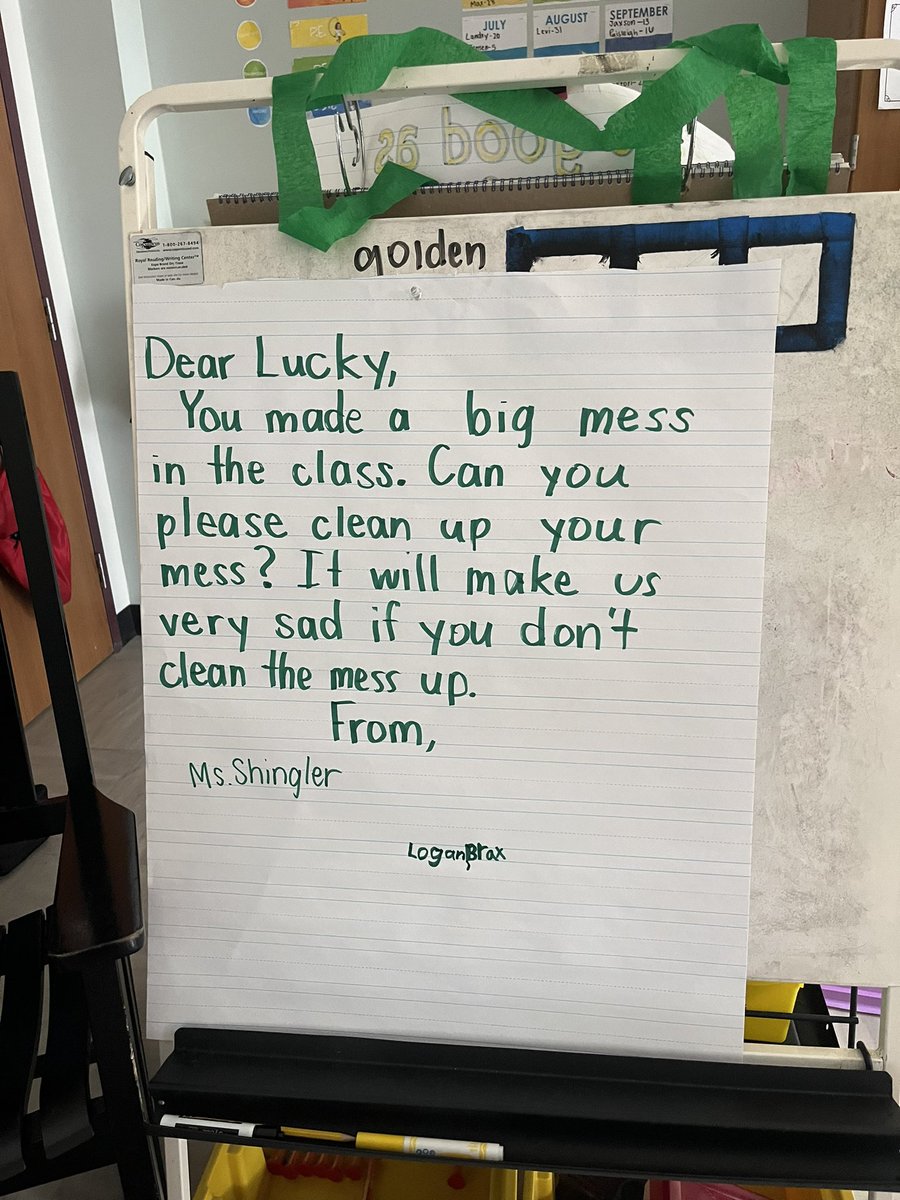 P.E.
JULY
Landry-20
AUGUST
Levi-31
SEPTEMBER
Jaxson-13
golden
1-800-267-6494
Royal Reading/Writing Center™
Dear Lucky,
You made a big mess
in the class. Can you
please clean up your
mess? It will make us
very sad if you don't
clean the mess up.
From,
Ms. Shingler
Logan, Brax